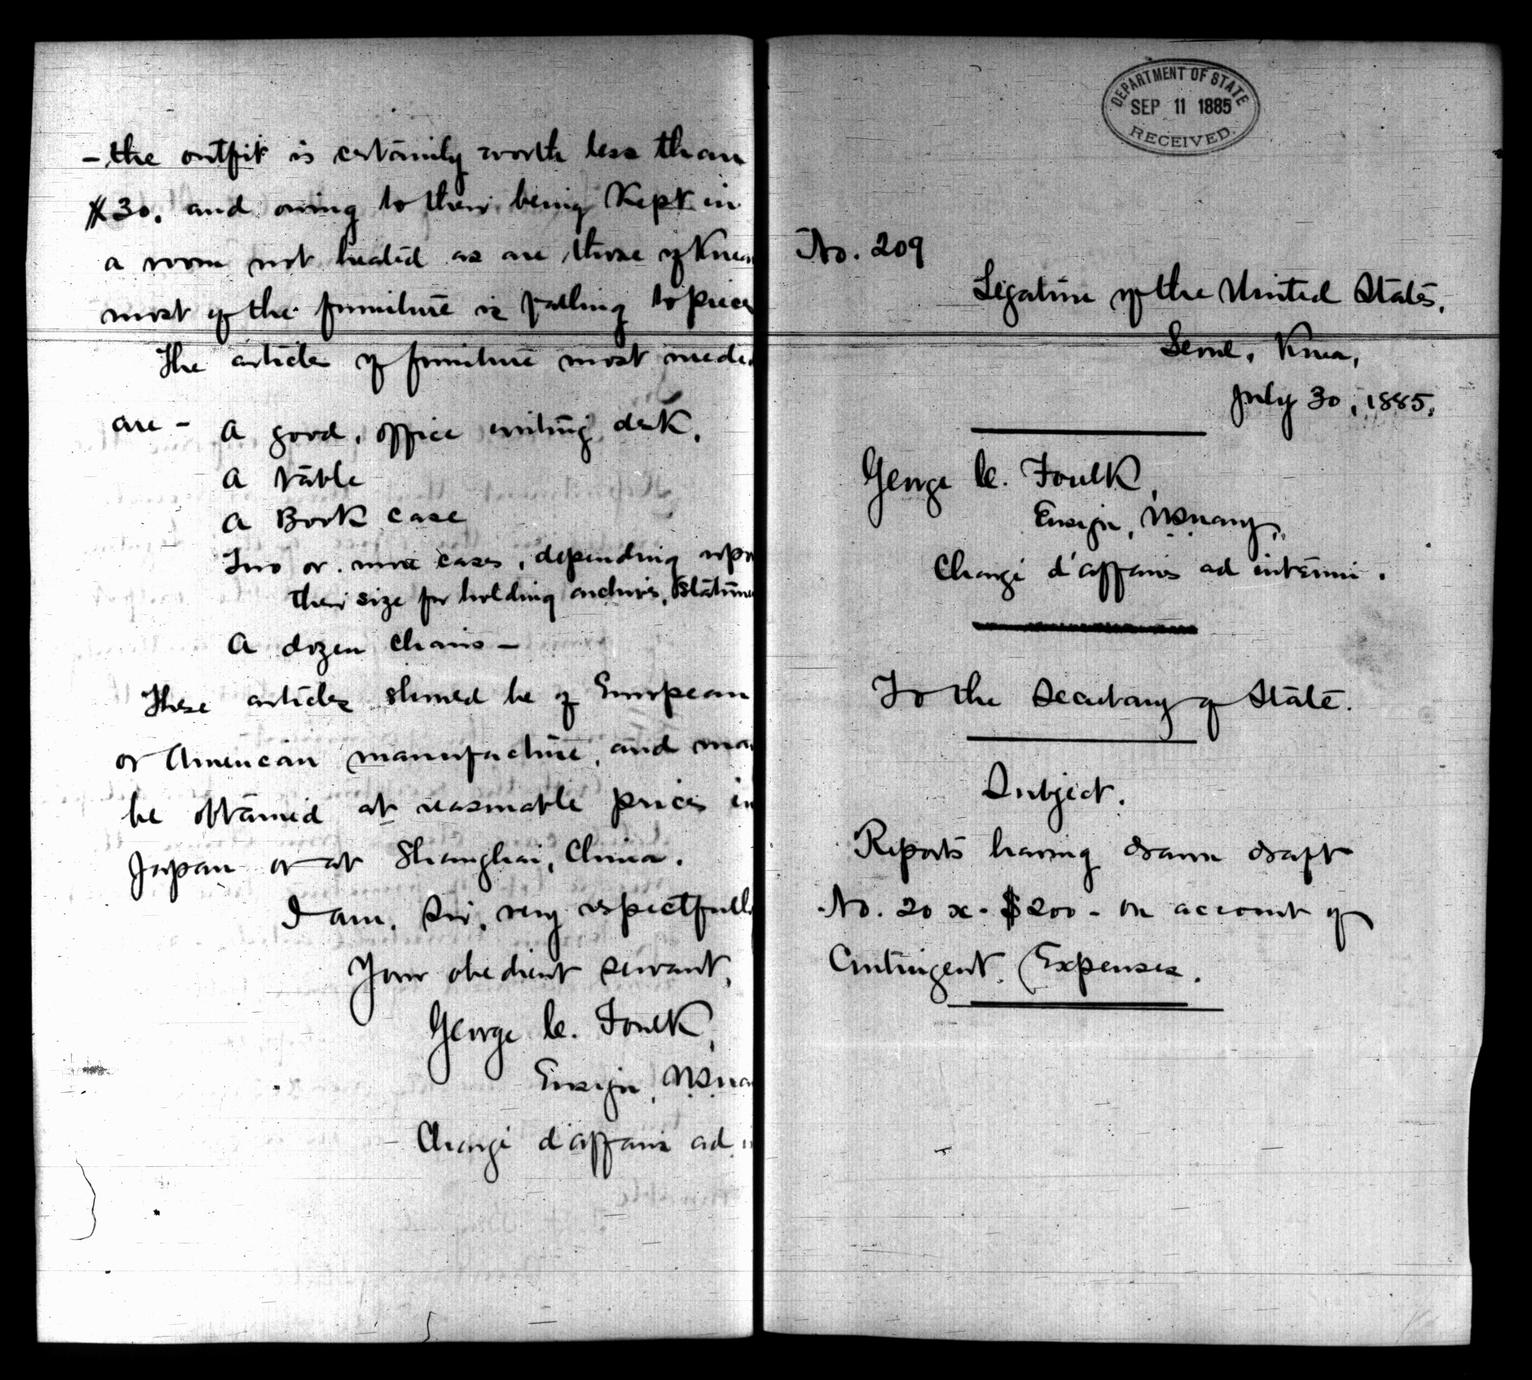 - the outfit is certainly worth less than
$30. and owing to their being kept in
a room not heated as are those of Korea
most of the furniture is falling to pieces
The articles of furniture most needed
are - A good, office writing desk.
A table
A Book case
Two or more cases, depending upon
their size for holding archives,
A dozen chairs -
These articles should be of European
or American manufacture, and may
be obtained at reasonable prices in
Japan or at Shanghai, China.
I am, Sir, very respectfully
Your obedient servant,
George C. Foulk,
Ensign, U.S. Na
Chargé d'affaires ad
DEPARTMENT OF STATE
SEP 11 1885
RECEIVED.
No. 209
Legation of the United States.
Seoul, Korea,
July 30, 1885.
George C. Foulk,
Ensign, U.S. Navy,
Chargé d'affaires ad interim.
To the Secretary of State.
Subject.
Reports having drawn draft
No. 20 x - $200 - on account of
Contingent Expenses.